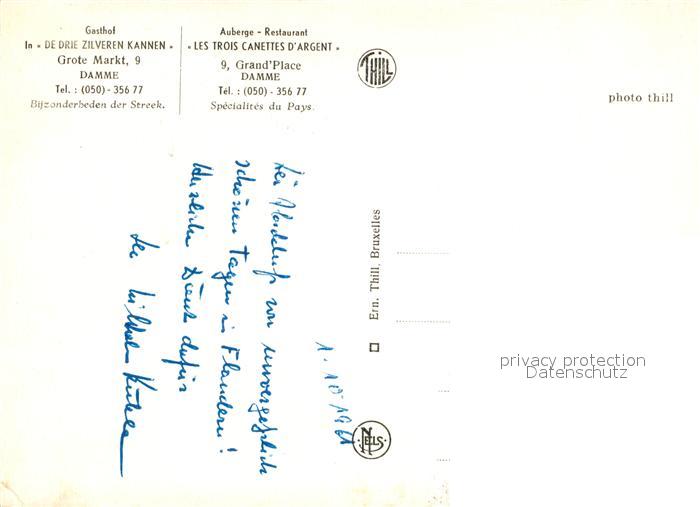 Gasthof
In « DE DRIE ZILVEREN KANNEN »
Grote Markt, 9
DAMME
Tel. : (050) - 356 77
Bijzonderheden der Streek.
Auberge - Restaurant
« LES TROIS CANETTES D'ARGENT »
9, Grand'Place
DAMME
Tél. : (050) - 356 77
Spécialités du Pays.
THILL
photo thill
Ern. Thill, Bruxelles
NELS
1.10.1961
von unvergeßlich
schönen Tagen in Flandern!
Herzlichen Dank dafür
Wilhelm
privacy protection
Datenschutz